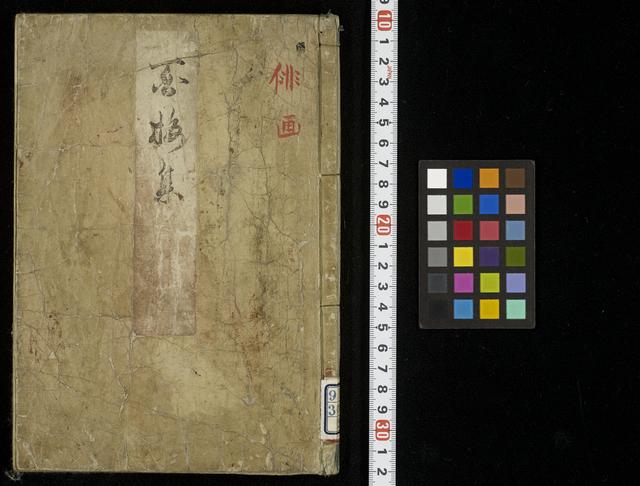 俳画
集
9
3
9 10 1 2 3 4 5 6 7 8 9 20 1 2 3 4 5 6 7 8 9 30 1 2